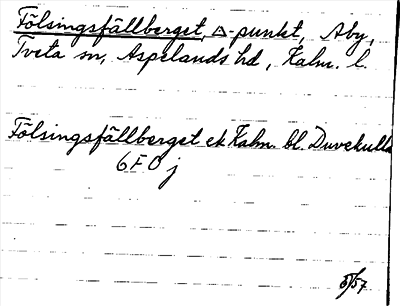 Fölsingsfällberget, △-punkt, Åby,
Tveta sn, Aspelands hd, Kalm. l.
Fölsingsfällberget ek Kalm. bl. Duvekulla
6F0j
5/57